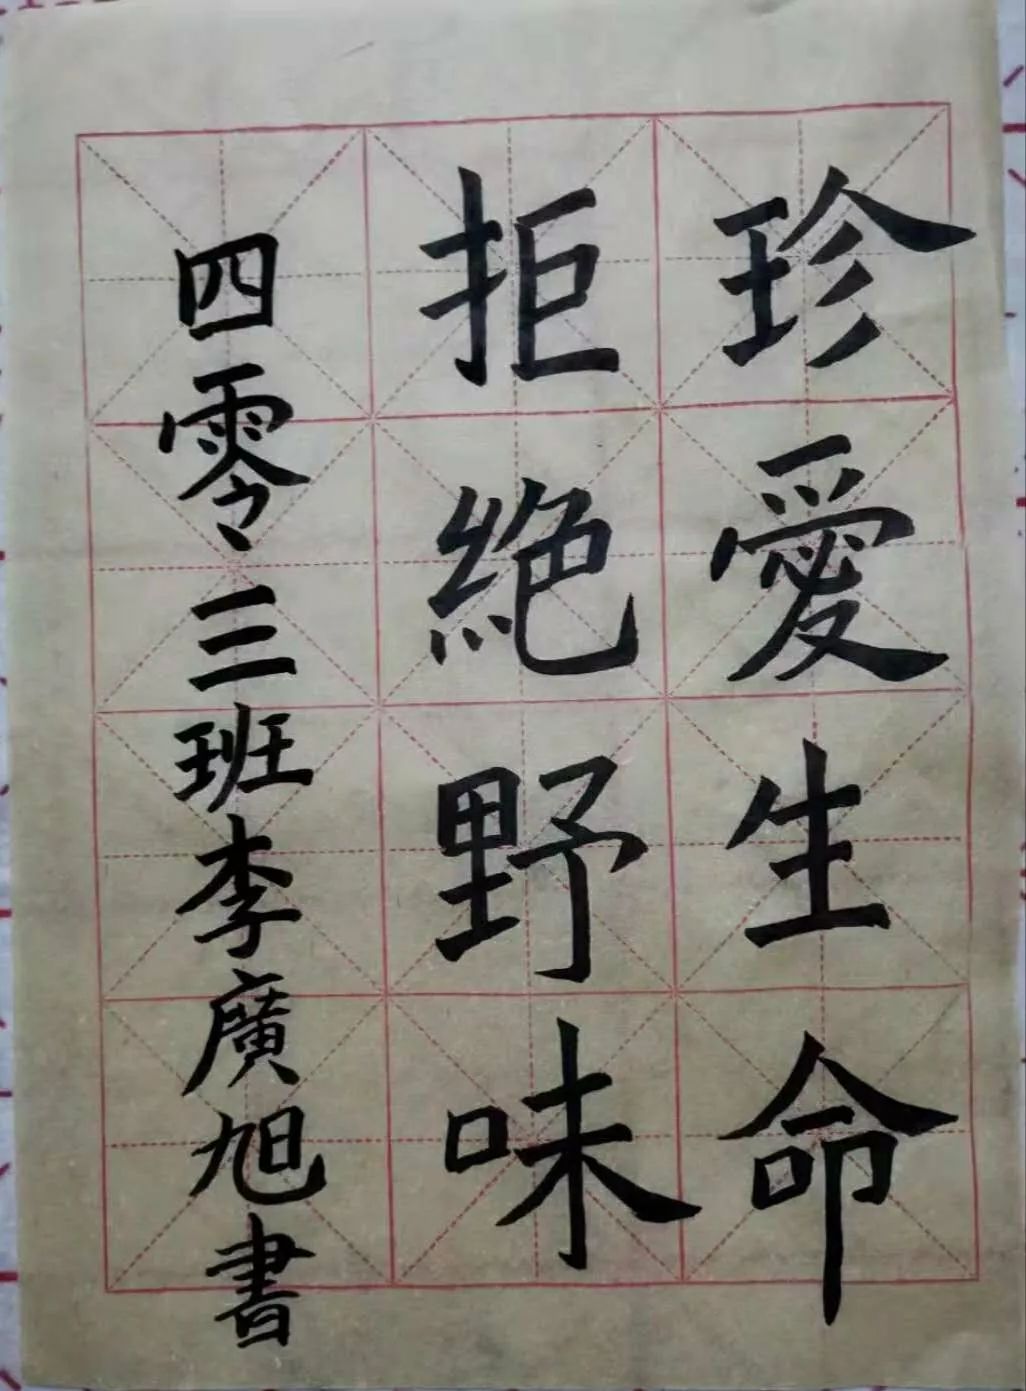 珍愛生命
拒絕野味
四零三班李廣旭書